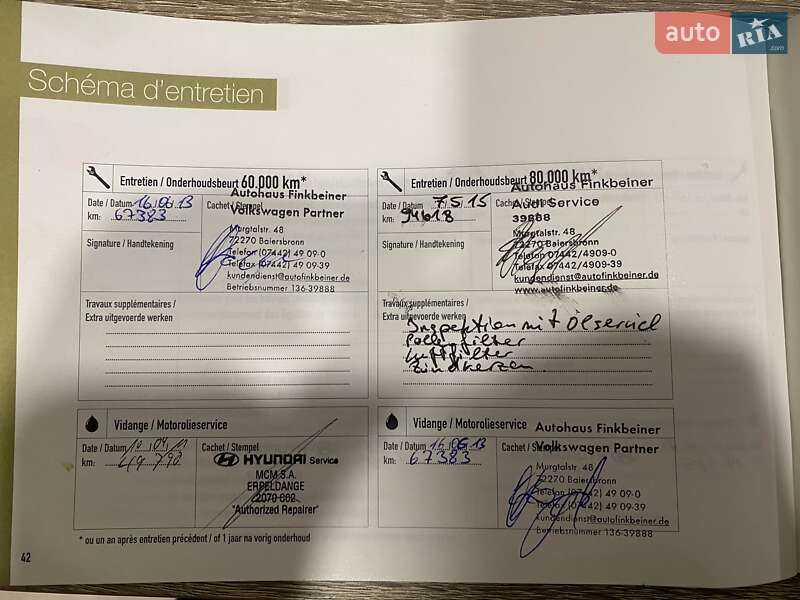 auto RIA.com
Schéma d'entretien
Entretien / Onderhoudsbeurt 60.000 km*
Date / Datum 16.06.13
km: 67383
Cachet / Stempel
Autohaus Finkbeiner
Volkswagen Partner
Murgtalstr. 48
72270 Baiersbronn
Telefon (07442) 49 09-0
Telefax (07442) 49 09-39
kundendienst@autofinkbeiner.de
Betriebsnummer 136-39888
Signature / Handtekening
Travaux supplémentaires /
Extra uitgevoerde werken
Entretien / Onderhoudsbeurt 80.000 km*
Date / Datum 7.5.15
km: 94618
Cachet / Stempel
Autohaus Finkbeiner
Audi Service
39888
Murgtalstr. 48
72270 Baiersbronn
Telefon 07442/4909-0
Telefax 07442/4909-39
kundendienst@autofinkbeiner.de
www.autofinkbeiner.de
Signature / Handtekening
Travaux supplémentaires /
Extra uitgevoerde werken
Inspektion mit Ölservice
Pollenfilter
Luftfilter
Zündkerzen
Vidange / Motorolieservice
Date / Datum 10.04.11
km: 49790
Cachet / Stempel
HYUNDAI Service
MCM S.A.
ERPELDANGE
"Authorized Repairer"
Vidange / Motorolieservice
Date / Datum 16.06.13
km: 67383
Cachet / Stempel
Autohaus Finkbeiner
Volkswagen Partner
Murgtalstr. 48
72270 Baiersbronn
Telefon (07442) 49 09-0
Telefax (07442) 49 09-39
kundendienst@autofinkbeiner.de
Betriebsnummer 136-39888
* ou un an après entretien précédent / of 1 jaar na vorig onderhoud
42